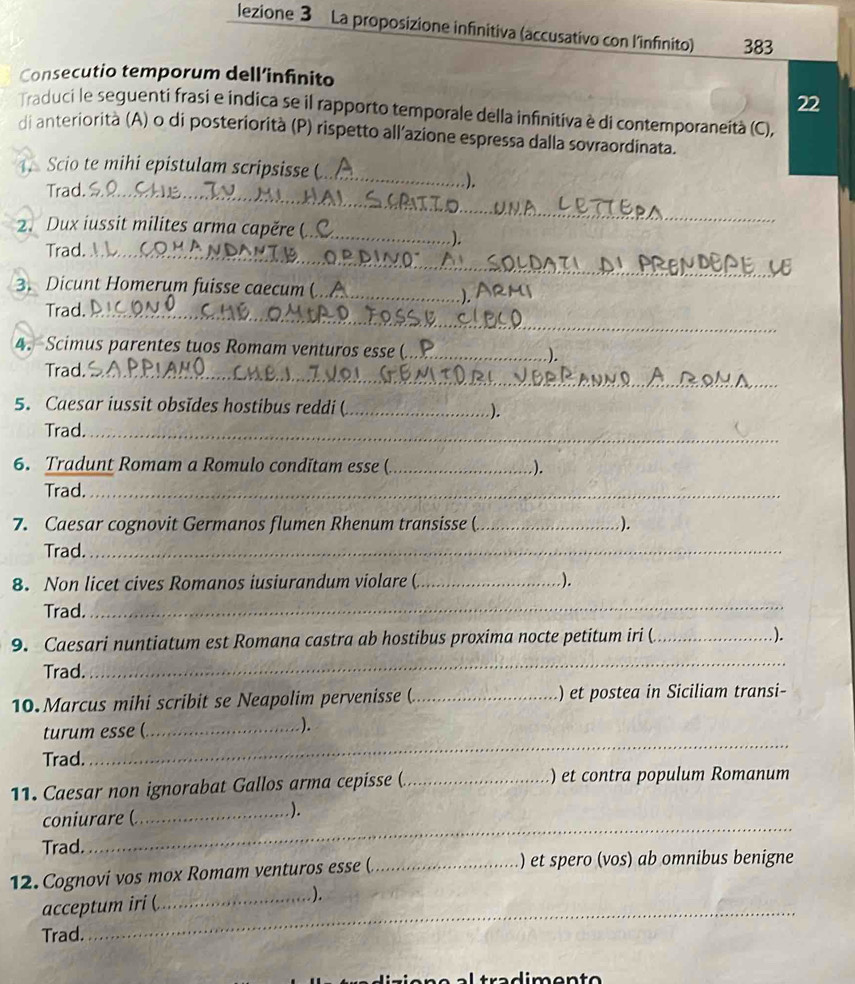 lezione 3 La proposizione infinitiva (accusativo con l'infinito) 383
Consecutio temporum dell'infinito
22
Traduci le seguenti frasi e indica se il rapporto temporale della infinitiva è di contemporaneità (C),
di anteriorità (A) o di posteriorità (P) rispetto all'azione espressa dalla sovraordinata.
1. Scio te mihi epistulam scripsisse (...A...).
Trad. SO CHE TU MI HAI SCRITTO UNA LETTERA
2. Dux iussit milites arma capĕre (...C...).
Trad. IL COMANDANTE ORDINO' AI SOLDATI DI PRENDERE LE
3. Dicunt Homerum fuisse caecum (...A...). ARMI
Trad. DICONO CHE OMERO FOSSE CIECO
4. Scimus parentes tuos Romam venturos esse (...P...).
Trad. SAPPIAMO CHE I TUOI GENITORI VERRANNO A ROMA
5. Caesar iussit obsĭdes hostibus reddi (......).
Trad.
6. Tradunt Romam a Romulo condĭtam esse (......).
Trad.
7. Caesar cognovit Germanos flumen Rhenum transisse (......).
Trad.
8. Non licet cives Romanos iusiurandum violare (......).
Trad.
9. Caesari nuntiatum est Romana castra ab hostibus proxima nocte petitum iri (......).
Trad.
10. Marcus mihi scribit se Neapolim pervenisse (......) et postea in Siciliam transi-
turum esse (......).
Trad.
11. Caesar non ignorabat Gallos arma cepisse (......) et contra populum Romanum
coniurare (......).
Trad.
12. Cognovi vos mox Romam venturos esse (......) et spero (vos) ab omnibus benigne
acceptum iri (......).
Trad.
al tradimento